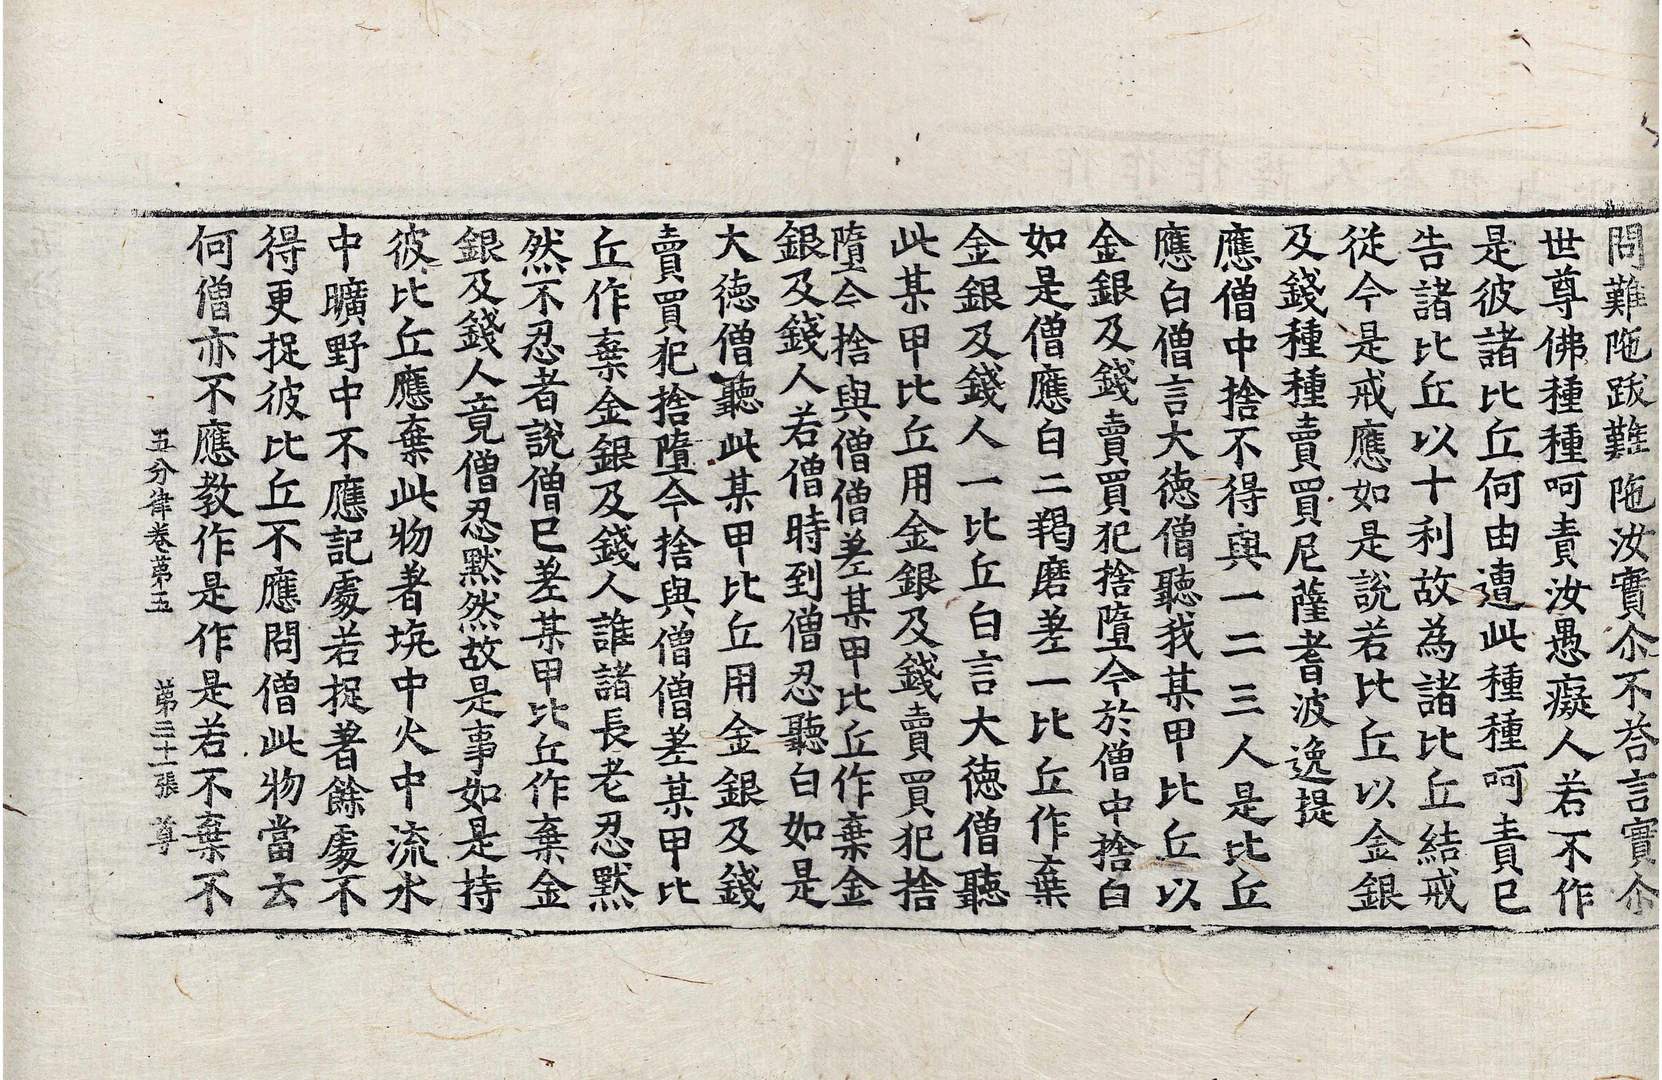 問難陁跋難陁汝實尒不荅言實尒
世尊佛種種呵責汝愚癡人若不作
是彼諸比丘何由遭此種種呵責巳
告諸比丘以十利故為諸比丘結戒
從今是戒應如是說若比丘以金銀
及錢種種賣買尼薩耆波逸提
應僧中捨不得與一二三人是比丘
應白僧言大徳僧聽我某甲比丘以
金銀及錢賣買犯捨墮今於僧中捨白
如是僧應白二羯磨差一比丘作棄
金銀及錢人一比丘白言大徳僧聽
此某甲比丘用金銀及錢賣買犯捨
墮今捨與僧僧差某甲比丘作棄金
銀及錢人若僧時到僧忍聽白如是
大徳僧聽此某甲比丘用金銀及錢
賣買犯捨墮今捨與僧僧差某甲比
丘作棄金銀及錢人誰諸長老忍黙
然不忍者說僧巳差某甲比丘作棄金
銀及錢人竟僧忍黙然故是事如是持
彼比丘應棄此物著坑中火中流水
中曠野中不應記處若捉著餘處不
得更捉彼比丘不應問僧此物當去
何僧亦不應教作是作是若不棄不
五分律卷第五　第三十張　尊